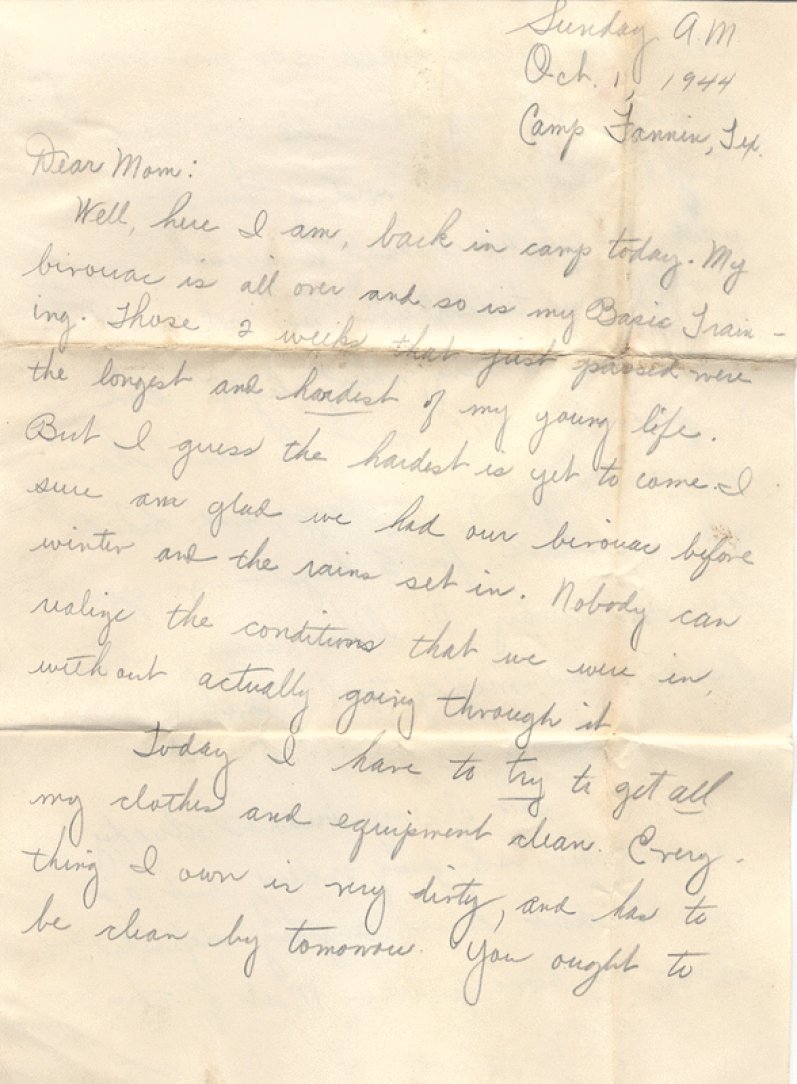 Sunday A.M
Oct. 1, 1944
Camp Fannin, Tex.
Dear Mom:
Well, here I am, back in camp today. My
bivouac is all over and so is my Basic Train-
ing. Those 2 weeks that just passed were
the longest and hardest of my young life.
But I guess the hardest is yet to come. I
sure am glad we had our bivouac before
winter and the rains set in. Nobody can
realize the conditions that we were in,
without actually going through it.
Today I have to try to get all
my clothes and equipment clean. Every-
thing I own is very dirty, and has to
be clean by tomorrow. You ought to